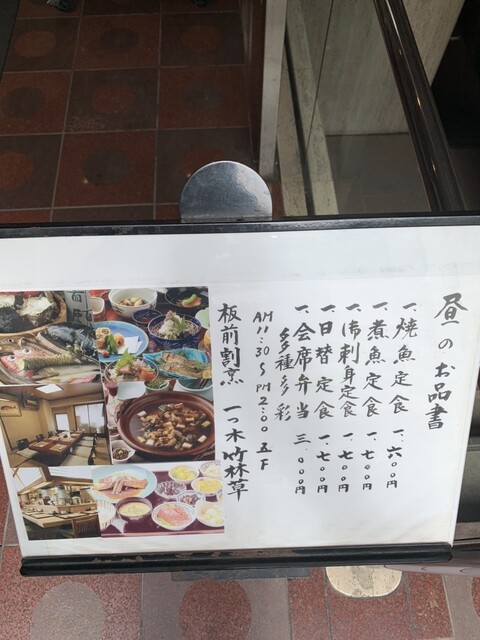 昼のお品書
一、焼魚定食 一、六〇〇円
一、煮魚定食 一、七〇〇円
一、御刺身定食 一、七〇〇円
一、日替定食 一、七〇〇円
一、会席弁当 三、〇〇〇円
多種多彩
AM 11:30〜PM 2:00 五F
板前割烹 一っ木竹林草